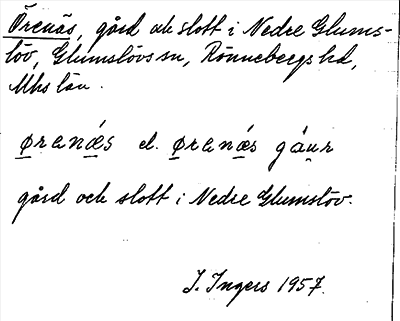 Örenäs, gård ok slott i Nedre Glums-
löv, Glumslövs sn, Rönnebergs hd,
Mhs län.
ørenæs el. ørenæs gáur
gård och slott i Nedre Glumslöv.
I. Ingers 1957.